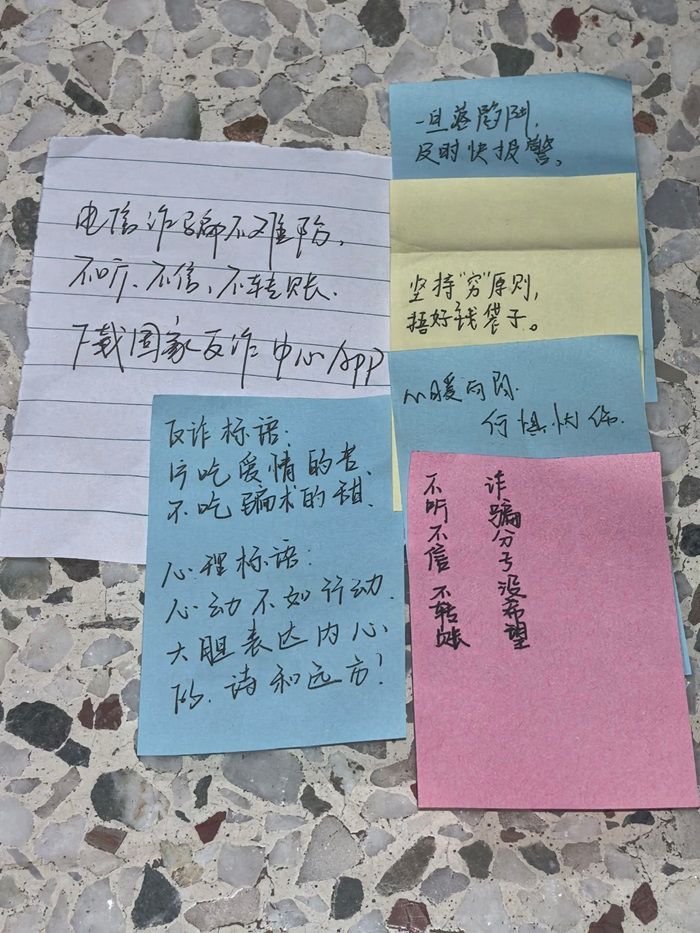 电信诈骗不难防,
不听、不信、不转账.
下载国家反诈中心APP
一旦落陷阱,
及时快报警、
坚持"穷"原则,
捂好钱袋子。
心暖向阳.
何惧忧伤.
反诈标语:
宁吃爱情的苦、
不吃骗术的甜.
心理标语:
心动不如行动.
大胆表达内心
的.诗和远方!
诈骗分子没希望
不听不信不转账